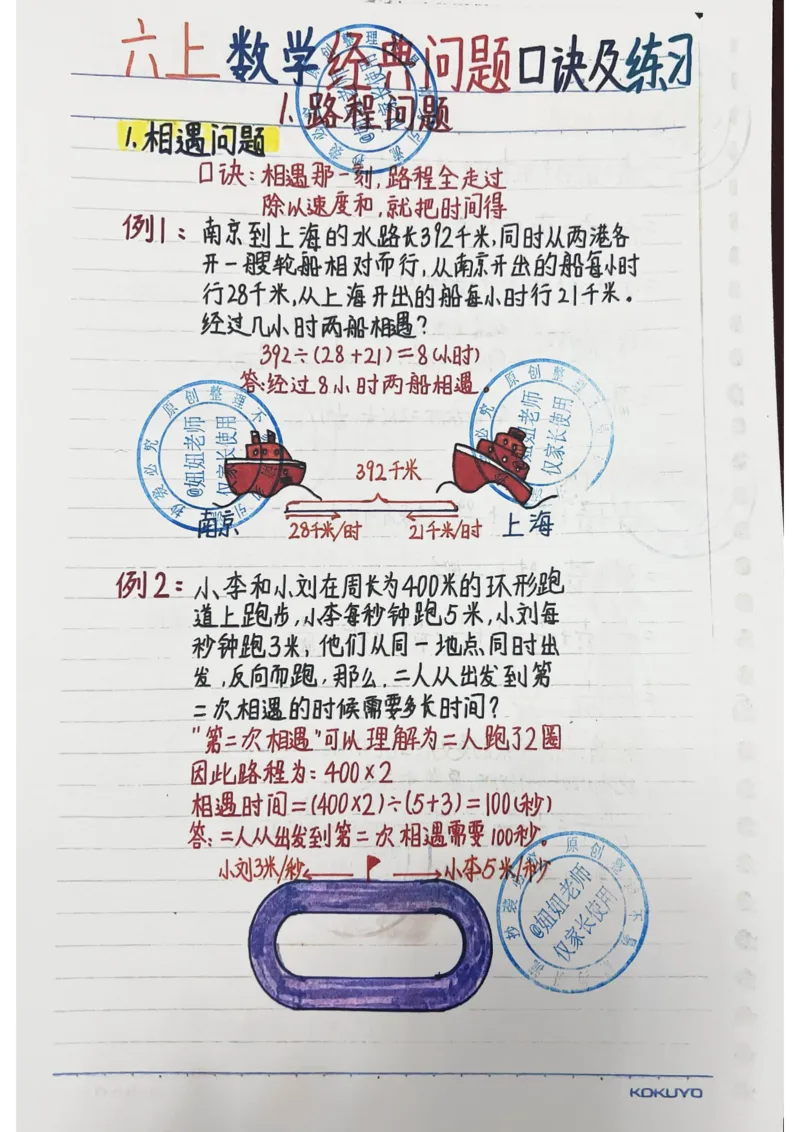 六上数学经典问题口诀及练习
1.路程问题
1.相遇问题
口诀:相遇那一刻,路程全走过
除以速度和,就把时间得
例1:南京到上海的水路长392千米,同时从两港各
开一艘轮船相对而行,从南京开出的船每小时
行28千米,从上海开出的船每小时行21千米.
经过几小时两船相遇?
392÷(28+21)=8(小时)
答:经过8小时两船相遇.
原创整理不
抄袭必究
@妞妞老师
仅家长使用
392千米
南京 28千米/时 21千米/时 上海
例2:小李和小刘在周长为400米的环形跑
道上跑步,小李每秒钟跑5米,小刘每
秒钟跑3米,他们从同一地点同时出
发,反向而跑,那么,二人从出发到第
二次相遇的时候需要多长时间?
"第二次相遇"可以理解为二人跑了2圈
因此路程为:400×2
相遇时间=(400×2)÷(5+3)=100(秒)
答:二人从出发到第二次相遇需要100秒。
小刘3米/秒 小李5米/秒
原创整理不易
@妞妞老师
仅家长使用
KOKUYO